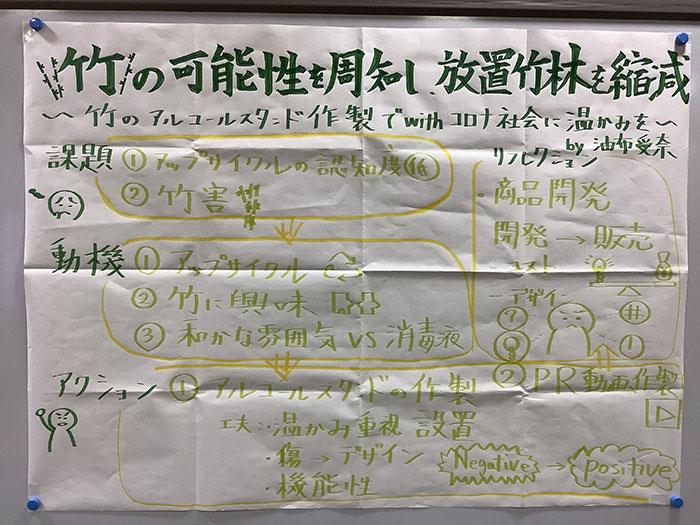 竹の可能性を周知し、放置竹林を縮減
〜竹のアルコールスタンド作製でwithコロナ社会に温かみを〜
by 油布愛奈
課題 ① アップサイクルの認知度⑯
② 竹害
動機 ① アップサイクル
② 竹に興味
③ 和かな雰囲気 VS 消毒液
アクション ① アルコールスタンドの作製
工夫:・温かみ重視 設置
・傷→デザイン Negative → positive
・機能性
② PR動画作製
リフレクション
・商品開発
開発→販売
-コスト
-デザイン